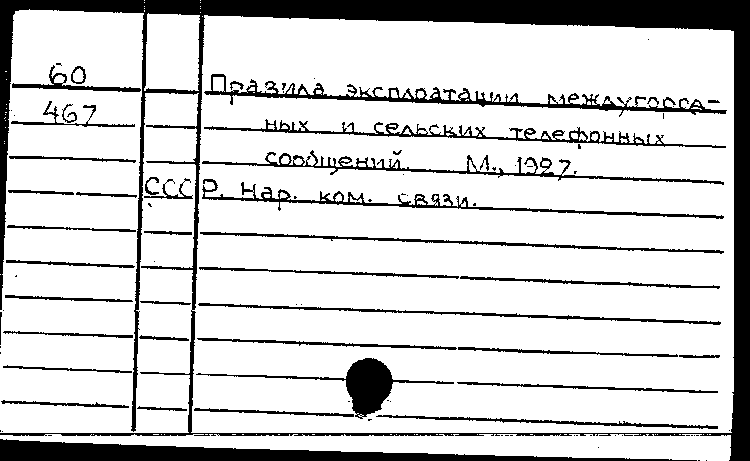 60
Правила эксплоатации междугорса-
467
ных и сельских телефонных
сообщений. М., 1927.
СССР. Нар. ком. связи.